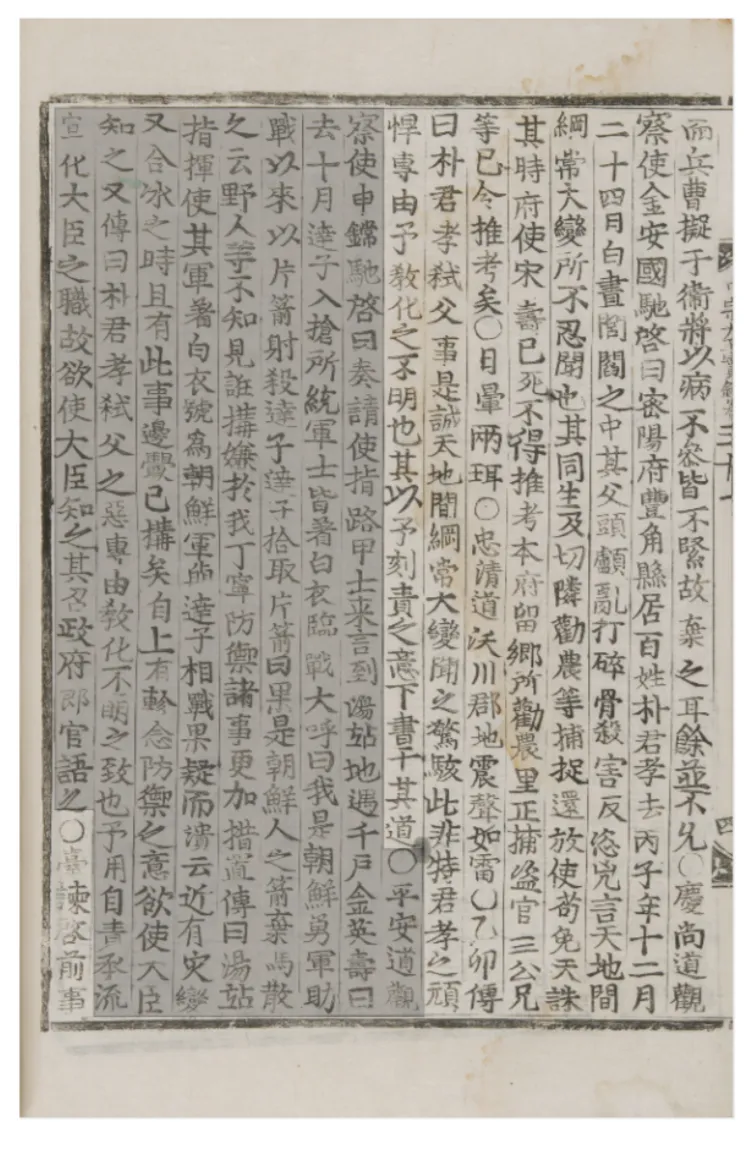 而兵曹擬于衛將以病不參皆不緊故棄之耳餘並不允○慶尚道觀
察使金安國馳啓曰密陽府豐角縣居百姓朴君孝去丙子年十二月
二十四日白晝閭閻之中其父頭顱亂打碎骨殺害反恣兇言天地間
綱常大變所不忍聞也其同生及切隣勸農等捕捉還放使苟免天誅
其時府使宋壽已死不得推考本府留鄕所勸農里正捕盜官三公兄
等已令推考矣○日暈兩珥○忠淸道沃川郡地震聲如雷○乙卯傳
曰朴君孝弑父事是誠天地間綱常大變聞之驚駭此非特君孝之頑
悍專由予敎化之不明也其以予刻責之意下書于其道○平安道觀
察使申鏛馳啓曰奏請使指路甲士来言到湯站地遇千戶金英壽曰
去十月達子入搶所統軍士皆著白衣臨戰大呼曰我是朝鮮勇軍助
戰以來以片箭射殺達子達子拾取片箭曰果是朝鮮人之箭棄馬散
之云野人等不知見誑搆嫌於我丁寧防禦諸事更加措置傳曰湯站
指揮使其軍著白衣號爲朝鮮軍而達子相戰果疑而潰云近有灾變
又合冰之時且有此事邊釁已搆矣自上有軫念防禦之意欲使大臣
知之又傳曰朴君孝弑父之惡專由敎化不明之致也予用自責承流
宣化大臣之職故欲使大臣知之其召政府郎官語之○臺諫啓前事
三十一
四